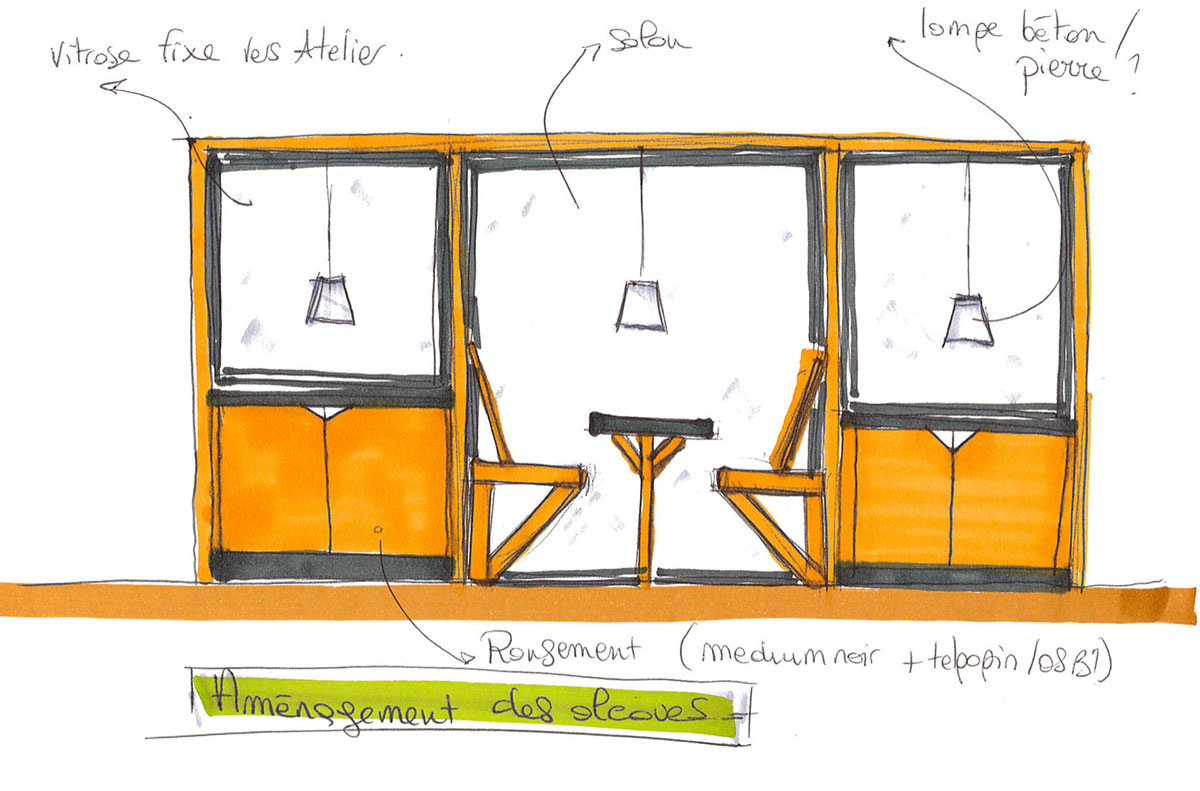 vitrage fixe vers Atelier.
Salon
lampe béton /
pierre ?
Rangement (medium noir + telpopin / OSB?)
Aménagement des alcoves